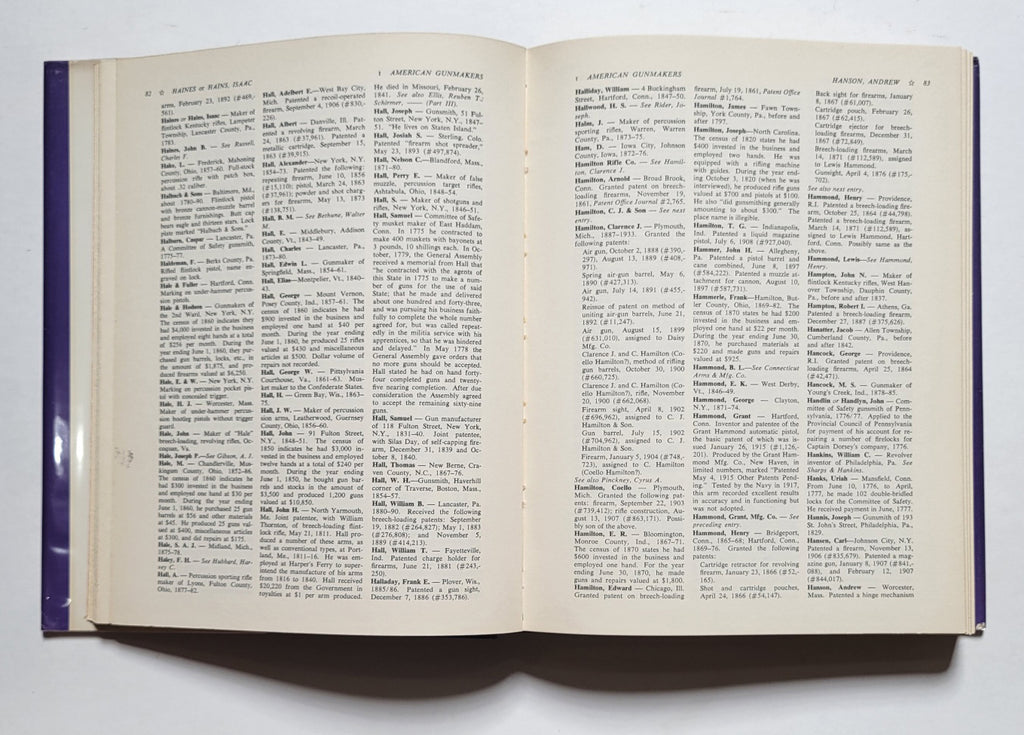 82 ☆ HAINES or HAINS, ISAAC
I AMERICAN GUNMAKERS
arms, February 23, 1892 (#469,
561).
Haines or Hains, Isaac — Maker of
flintlock Kentucky rifles, Lampeter
Township, Lancaster County, Pa.,
1783.
Haines, John B. — See Russell,
Charles F.
Haks, L. — Frederick, Mahoning
County, Ohio, 1857-60. Full-stock
percussion rifle with patch box,
about .32 caliber.
Halbach & Sons — Baltimore, Md.,
about 1780-90. Flintlock pistol
with bronze cannon-muzzle barrel
and bronze furnishings. Butt cap
bears eagle and thirteen stars. Lock
plate marked "Hulbach & Sons."
Halburn, Caspar — Lancaster, Pa.
A Committee of Safety gunsmith,
1775-77.
Haldeman, F. — Berks County, Pa.
Rifled flintlock pistol, name en-
graved on lock.
Hale & Fuller — Hartford, Conn.
Marking on under-hammer percus-
sion pistols.
Hale & Hudson — Gunmakers of
the 2nd Ward, New York, N.Y.
The census of 1860 indicates they
had $4,000 invested in the business
and employed eight hands at a total
of $256 per month. During the
year ending June 1, 1860, they pur-
chased gun barrels, locks, etc., in
the amount of $1,875, and pro-
duced firearms valued at $6,250.
Hale, E. & W. — New York, N.Y.
Marking on percussion pocket pis-
tol with concealed trigger.
Hale, H. J. — Worcester, Mass.
Maker of under-hammer percus-
sion bootleg pistols without trigger
guard.
Hale, John — Maker of "Hale"
breech-loading, revolving rifles, Oc-
coquan, Va.
Hale, Joseph F.—See Gibson, A. J.
Hale, M. — Chandlerville, Mus-
kingum County, Ohio, 1852-86.
The census of 1860 indicates he
had $300 invested in the business
and employed one hand at $30 per
month. During the year ending
June 1, 1860, he purchased 25 gun
barrels at $56 and other materials
at $45. He produced 25 guns val-
ued at $400, miscellaneous articles
at $300, and did repairs at $175.
Hale, S. A. J. — Midland, Mich.,
1875-78.
Haley, F. H. — See Hubbard, Har-
vey C.
Hall, A. — Percussion sporting rifle
maker of Lyons, Fulton County,
Ohio, 1877-82.
Hall, Adelbert E.—West Bay City,
Mich. Patented a recoil-operated
firearm, September 4, 1906 (#830,-
226).
Hall, Albert — Danville, Ill. Pat-
ented a revolving firearm, March
24, 1863 (#37,961). Patented a
metallic cartridge, September 15,
1863 (#39,915).
Hall, Alexander—New York, N.Y.
1854-73. Patented the following:
repeating firearm, June 10, 1856
(#15,110); pistol, March 24, 1863
(#37,961); powder and shot charg-
ers for firearms, May 13, 1873
(#138,751).
Hall, B. M. — See Bethune, Walter
M.
Hall, E. — Middlebury, Addison
County, Vt., 1843-49.
Hall, Charles — Lancaster, Pa.,
1873-80.
Hall, Edwin L. — Gunmaker of
Springfield, Mass., 1854-61.
Hall, Elias—Montpelier, Vt., 1840-
43.
Hall, George — Mount Vernon,
Posey County, Ind., 1857-61. The
census of 1860 indicates he had
$900 invested in the business and
employed one hand at $40 per
month. During the year ending
June 1, 1860, he produced 25 rifles
valued at $430 and miscellaneous
articles at $500. Dollar volume of
repairs not recorded.
Hall, George W. — Pittsylvania
Courthouse, Va., 1861-63. Mus-
ket maker to the Confederate States.
Hall, H. — Green Bay, Wis., 1863-
75.
Hall, J. W. — Maker of percussion
arms, Leatherwood, Guernsey
County, Ohio, 1856-60.
Hall, John — 91 Fulton Street,
N.Y., 1848-51. The census of
1850 indicates he had $3,000 in-
vested in the business and employed
twelve hands at a total of $240 per
month. During the year ending
June 1, 1850, he bought gun bar-
rels and stocks in the amount of
$3,500 and produced 1,200 guns
valued at $10,850.
Hall, John H. — North Yarmouth,
Me. Joint patentee, with William
Thornton, of breech-loading flint-
lock rifle, May 21, 1811. Hall pro-
duced a number of these arms, as
well as conventional types, at Port-
land, Me., 1811-16. He was em-
ployed at Harper's Ferry to super-
intend the manufacture of his arms
from 1816 to 1840. Hall received
$20,220 from the Government in
royalties at $1 per arm produced.
He died in Missouri, February 26,
1841. See also Ellis, Reuben T.;
Schirmer, —— (Part III).
Hall, Joseph — Gunsmith, 51 Ful-
ton Street, New York, N.Y., 1847-
51. "He lives on Staten Island."
Hall, Josiah S. — Sterling, Colo.
Patented "firearm shot spreader,"
May 23, 1893 (#497,874).
Hall, Nelson C.—Blandford, Mass.,
1871-80.
Hall, Perry E. — Maker of false
muzzle, percussion target rifles,
Ashtabula, Ohio, 1848-54.
Hall, S. — Maker of shotguns and
rifles, New York, N.Y., 1846-51.
Hall, Samuel — Committee of Safe-
ty musket maker of East Haddam,
Conn. In 1775 he contracted to
make 400 muskets with bayonets at
3 pounds, 10 shillings each. In Oc-
tober, 1779, the General Assembly
received a memorial from Hall that
"he contracted with the agents of
this State in 1775 to make a num-
ber of guns for the use of said
State; that he made and delivered
about one hundred and forty-three,
and was pursuing his business faith-
fully to complete the whole number
agreed for, but was called repeat-
edly in the militia service with his
apprentices, so that he was hindered
and delayed." In May 1778 the
General Assembly gave orders that
no more guns should be accepted.
Hall stated he had on hand forty-
four completed guns and twenty-
five nearing completion. After due
consideration the Assembly agreed
to accept the remaining sixty-nine
guns.
Hall, Samuel — Gun manufacturer
of 118 Fulton Street, New York,
N.Y., 1831-40. Joint patentee,
with Silas Day, of self-capping fire-
arm, December 31, 1839 and Oc-
tober 8, 1840.
Hall, Thomas — New Berne, Cra-
ven County, N.C., 1867-76.
Hall, W. H.—Gunsmith, Haverhill
corner of Traverse, Boston, Mass.,
1854-57.
Hall, William B. — Lancaster, Pa.
1880-90. Received the following
breech-loading patents: September
19, 1882 (#264,827); May 1, 1883
(#276,808); and November 5,
1889 (#414,213).
Hall, William T. — Fayetteville,
Ind. Patented charge holder for
firearms, June 21, 1881 (#243,-
250).
Halladay, Frank E. — Plover, Wis.,
1885/86. Patented a gun sight,
December 7, 1886 (#353,786).
I AMERICAN GUNMAKERS
HANSON, ANDREW ☆ 83
Halliday, William — 4 Buckingham
Street, Hartford, Conn., 1847-50.
Hallwood, H. S. — See Rider, Jo-
seph.
Halm, J. — Maker of percussion
sporting rifles, Warren, Warren
County, Pa., 1873-75.
Ham, D. — Iowa City, Johnson
County, Iowa, 1872-76.
Hamilton Rifle Co. — See Hamil-
ton, Clarence J.
Hamilton, Arnold — Broad Brook,
Conn. Granted patent on breech-
loading firearms, November 19,
1861, Patent Office #2,765.
Hamilton, C. J. & Son — See next
entry.
Hamilton, Clarence J. — Plymouth,
Mich., 1887-1933. Granted the
following patents:
Air gun, October 2, 1888 (#390,-
297), August 13, 1889 (#408,-
971).
Spring air-gun barrel, May 6,
1890 (#427,313).
Air gun, July 14, 1891 (#455,-
942).
Reissue of patent on method of
uniting air-gun barrels, June 21,
1892 (#11,247).
Air gun, August 15, 1899
(#631,010), assigned to Daisy
Mfg. Co.
Clarence J. and C. Hamilton (Co-
ello Hamilton?), method of rifling
gun barrels, October 30, 1900
(#660,725).
Clarence J. and C. Hamilton (Co-
ello Hamilton?), rifle, November
20, 1900 (#662,068).
Firearm sight, April 8, 1902
(#696,962), assigned to C. J.
Hamilton & Son.
Gun barrel, July 15, 1902
(#704,962), assigned to C. J.
Hamilton & Son.
Firearm, January 5, 1904 (#748,-
723), assigned to C. Hamilton
(Coello Hamilton?).
See also Pinckney, Cyrus A.
Hamilton, Coello — Plymouth,
Mich. Granted the following pat-
ents: firearm, September 22, 1903
(#739,412); rifle construction, Au-
gust 13, 1907 (#863,171). Possi-
bly son of the above.
Hamilton, E. R. — Bloomington,
Monroe County, Ind., 1867-71.
The census of 1870 states he had
$600 invested in the business and
employed one hand. For the year
ending June 30, 1870, he made
guns and repairs valued at $1,800.
Hamilton, Edward — Chicago, Ill.
Granted patent on breech-loading
firearm, July 19, 1861, Patent Office
Journal #1,764.
Hamilton, James — Fawn Town-
ship, York County, Pa., before and
after 1797.
Hamilton, Joseph—North Carolina.
The census of 1820 states he had
$400 invested in the business and
employed two hands. He was
equipped with a rifling machine
with guides. During the year end-
ing October 3, 1820 (when he was
interviewed), he produced rifle guns
valued at $700 and pistols at $100.
He also "did gunsmithing generally
amounting to about $300." The
place name is illegible.
Hamilton, T. G. — Indianapolis,
Ind. Patented a liquid magazine
pistol, July 6, 1908 (#927,040).
Hammer, John H. — Alleghony,
Pa. Patented a pistol barrel and
cane combined, June 8, 1897
(#584,222). Patented a muzzle at-
tachment for cannon, August 10,
1897 (#587,731).
Hammerle, Frank—Hamilton, But-
ler County, Ohio, 1869-82. The
census of 1870 states he had $200
invested in the business and em-
ployed one hand at $22 per month.
During the year ending June 30,
1870, he purchased materials at
$220 and made guns and repairs
valued at $925.
Hammond, B. L.—See Connecticut
Arms & Mfg. Co.
Hammond, E. K. — West Derby,
Vt., 1846-49.
Hammond, George — Clayton,
N.Y., 1871-74.
Hammond, Grant — Hartford,
Conn. Inventor and patentee of the
Grant Hammond automatic pistol,
the basic patent of which was is-
sued January 26, 1915 (#1,126,-
201). Produced by the Grant Ham-
mond Mfg. Co., New Haven, in
limited numbers, marked "Patented
May 4, 1915 Other Patents Pend-
ing." Tested by the Navy in 1917,
this arm recorded excellent results
in accuracy and in functioning but
was not adopted.
Hammond, Grant, Mfg. Co. — See
preceding entry.
Hammond, Henry — Bridgeport,
Conn., 1865-68; Hartford, Conn.,
1869-76. Granted the following
patents:
Cartridge retractor for revolving
firearm, January 23, 1866 (#52,-
165).
Shot and cartridge pouches,
April 24, 1866 (#54,147).
Back sight for firearms, January
8, 1867 (#61,007).
Cartridge pouch, February 26,
1867 (#62,415).
Cartridge ejector for breech-
loading firearms, December 31,
1867 (#72,849).
Breech-loading firearms, March
14, 1871 (#112,589), assigned
to Lewis Hammond.
Gunsight, April 4, 1876 (#175,-
702).
See also next entry.
Hammond, Henry — Providence,
R.I. Patented a breech-loading fire-
arm, October 25, 1864 (#44,798).
Patented a breech-loading firearm,
March 14, 1871 (#112,589), as-
signed to Lewis Hammond, Hart-
ford, Conn. Possibly same as the
above.
Hammond, Lewis—See Hammond,
Henry.
Hampton, John N. — Maker of
flintlock Kentucky rifles, West Han-
over Township, Dauphin County,
Pa., before and after 1837.
Hampton, Robert I. — Athens, Ga.
Patented a breech-loading firearm,
December 27, 1887 (#375,626).
Hanatter, Jacob — Allen Township,
Cumberland County, Pa., before
and after 1842.
Hancock, George — Providence,
R.I. Granted patent on breech-
loading firearms, April 25, 1864
(#42,471).
Hancock, M. S. — Gunmaker of
Young's Creek, Ind., 1878-85.
Handlin or Handlyn, John — Com-
mittee of Safety gunsmith of Penn-
sylvania, 1776/77. Applied to the
Provincial Council of Pennsylvania
for payment of his account for re-
pairing a number of firelocks for
Captain Dorsey's company, 1776.
Hankins, William C. — Revolver
inventor of Philadelphia, Pa. See
Sharps & Hankins.
Hanks, Uriah — Mansfield, Conn.
From June 10, 1776, to April,
1777, he made 102 double-bridled
locks for the Committee of Safety.
He received payment in June, 1777.
Hannis, Joseph — Gunsmith of 193
St. John's Street, Philadelphia, Pa.,
1829.
Hansen, Carl—Johnson City, N.Y.
Patented a firearm, November 13,
1906 (#835,679). Patented a mag-
azine gun, January 8, 1907 (#841,-
088), and February 12, 1907
(#844,017).
Hanson, Andrew — Worcester,
Mass. Patented a hinge mechanism